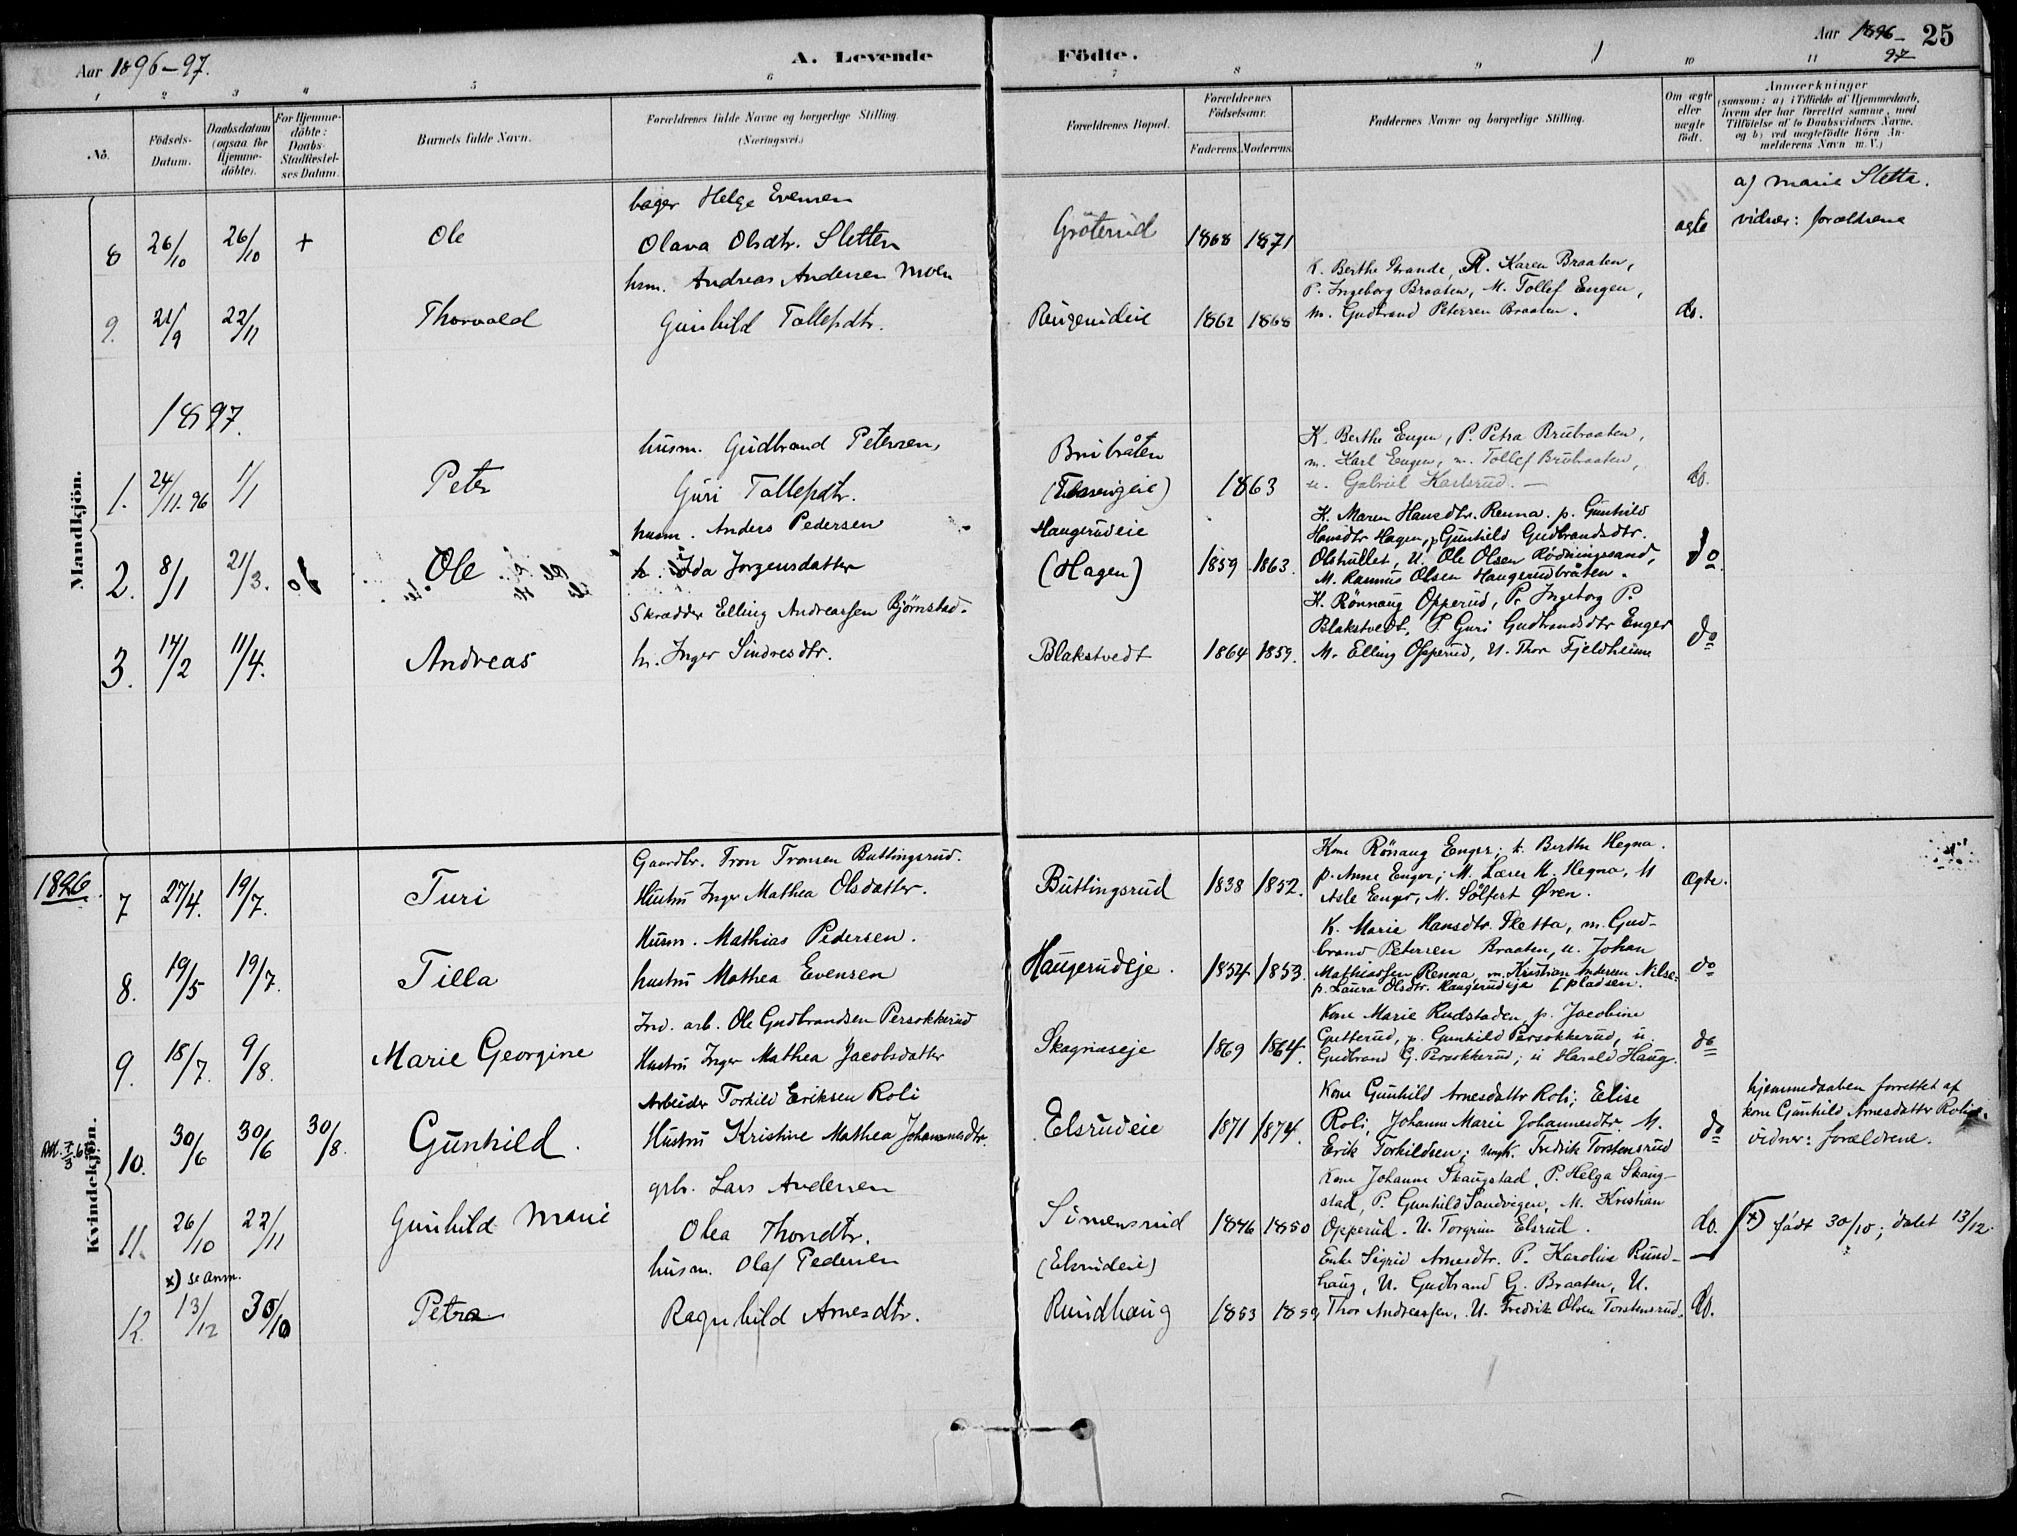 Aar 1896-97.
A. Levende Födte.
Aar 1896-97
25
1 2 3 4 5 6 7 8 9 10 11
No.
Födsels-Datum.
Daabsdatum (ogsaa for Hjemme-döbte).
For Hjemme-döbte: Daabs-Stadfæstel-ses Datum.
Barnets fulde Navn.
Forældrenes fulde Navne og borgerlige Stilling. (Næringsvei.)
Forældrenes Bopæl.
Forældrenes Födselsaar.
Faderens. Moderens.
Faddernes Navne og borgerlige Stilling.
Om ægte eller uægte födt.
Anmærkninger (saasom: a) i Tilfælde af Hjemmedaab, hvem der har forrettet samme, med Tilföielse af to Daabsvidners Navne, og b) ved uægtefödte Börn An-melderens Navn m. V.)
Mandkjön.
bager Helge Evensen
a) Marie Sletta.
8 26/10 26/10 + Ole Olava Olsdtr. Sletten Gröterud 1868 1871 ægte vidner: forældrene
hsm. Andreas Andersen Moen
K. Berthe Strande, P. Karen Braaten,
P. Ingeborg Braaten, M. Tollef Engen,
9. 21/9 22/11 Thorvald Gunhild Tollefsdtr. 1862 1868 m. Gudbrand Petersen Braaten. do.
1897.
husm. Gudbrand Petersen, Brubråten
K. Berthe Engen, P. Petra Brubraaten,
m. Karl Engen, m. Tollef Brubraaten,
1. 24/11.96 1/1 Peter Guri Tollefsdtr. 1863 u. Gabriel Karlsrud. — do.
husm. Anders Pedersen Haugerudeie
K. Maren Hansdtr. Renna. p. Gunhild
Hansdtr Hagen, p Gunhild Gudbrandsdtr.
2. 8/1 21/3. Ole h. Ida Jørgensdatter (Hagen) 1859 1863. U. Ole Olsen Rødningssand, do
M. Rasmus Olsen Haugerudbråten.
Skrædder Elling Andreassen Bjørnstad.
K. Rönnaug Opperud, P. Ingeborg P.
Blakstvedt, P Guri Gudbrandsdtr Enger
3. 14/2 11/4. Andreas h. Inger Sindresdtr. Blakstvedt 1864 1859. M. Elling Opperud, U. Thor Fjeldheim do
Kvindekjön.
1896.
Gaardbr. Tron Tronsen Buttingsrud.
Kone Rönaug Enger; k. Berthe Hegna.
p. Anne Enger; M. Lærer H. Hegna, M
7 27/4. 19/7. Turi Hustru Inger Mathea Olsdatter. Buttingsrud 1838 1852. Asle Enger, M. Sölfert Øren. Ægte.
Husm. Mathias Pedersen.
K. Marie Hansdtr. Sletta, m. Gud-
brand Petersen Braaten, u. Johan
8. 19/5 19/7. Tilla hustru Mathea Evensen Haugerudeje. 1854 1853. Mathiassen Renna, m. Kristian Andersen Nilse-
p. Laura Olsdtr. Haugerudeja [pladsen. do
Ind. arb. Ole Gudbrandsen Persokkerud
Kone Marie Rudstaden, p. Jacobine
9. 18/7. 9/8. Marie Georgine Hustru Inger Mathea Jacobsdatter Skagnæseje 1869 1864. Gutterud, p. Gunhild Persokkerud, u.
Gudbrand G. Persokkerud; u Harald Haug. do
Arbeider Torkild Eriksen Roli
Kone Gunhild Arnesdatter Roli; Elise
hjemmedaaben forrettet af
kone Gunhild Arnesdatter Roli.
10. 30/6 30/6 30/8. Gunhild. Hustru Kristine Mathea Johannesdtr. Elsrudeie 1871 1874. Roli, Johanne Marie Johannesdtr. M.
Erik Torkildsen; ungk. Fredrik Torstensrud do vidner: forældrene.
grbr. Lars Andersen
Kone Johanne Skaugstad, P. Helga Skaug-
stad, P. Gunhild Sandvigen, M. Kristian
11. 26/10 22/11 Gunhild Marie Olea Thordtr. Simensrud 1846 1850 Opperud. U. Torgrim Elsrud. do. x) født 30/10; døbt 13/12.
x) se anm.
husm. Olaf Pedersen (Elsrudeie)
Enke Sigrid Arnesdtr. P. Karoline Rund-
haug, U. Gudbrand G. Braaten, U.
12. 13/12 30/10 Petra Ragnhild Arnesdtr. Rundhaug 1853 1859 Thor Andreassen, U. Fredrik Olsen Torstensrud. do.